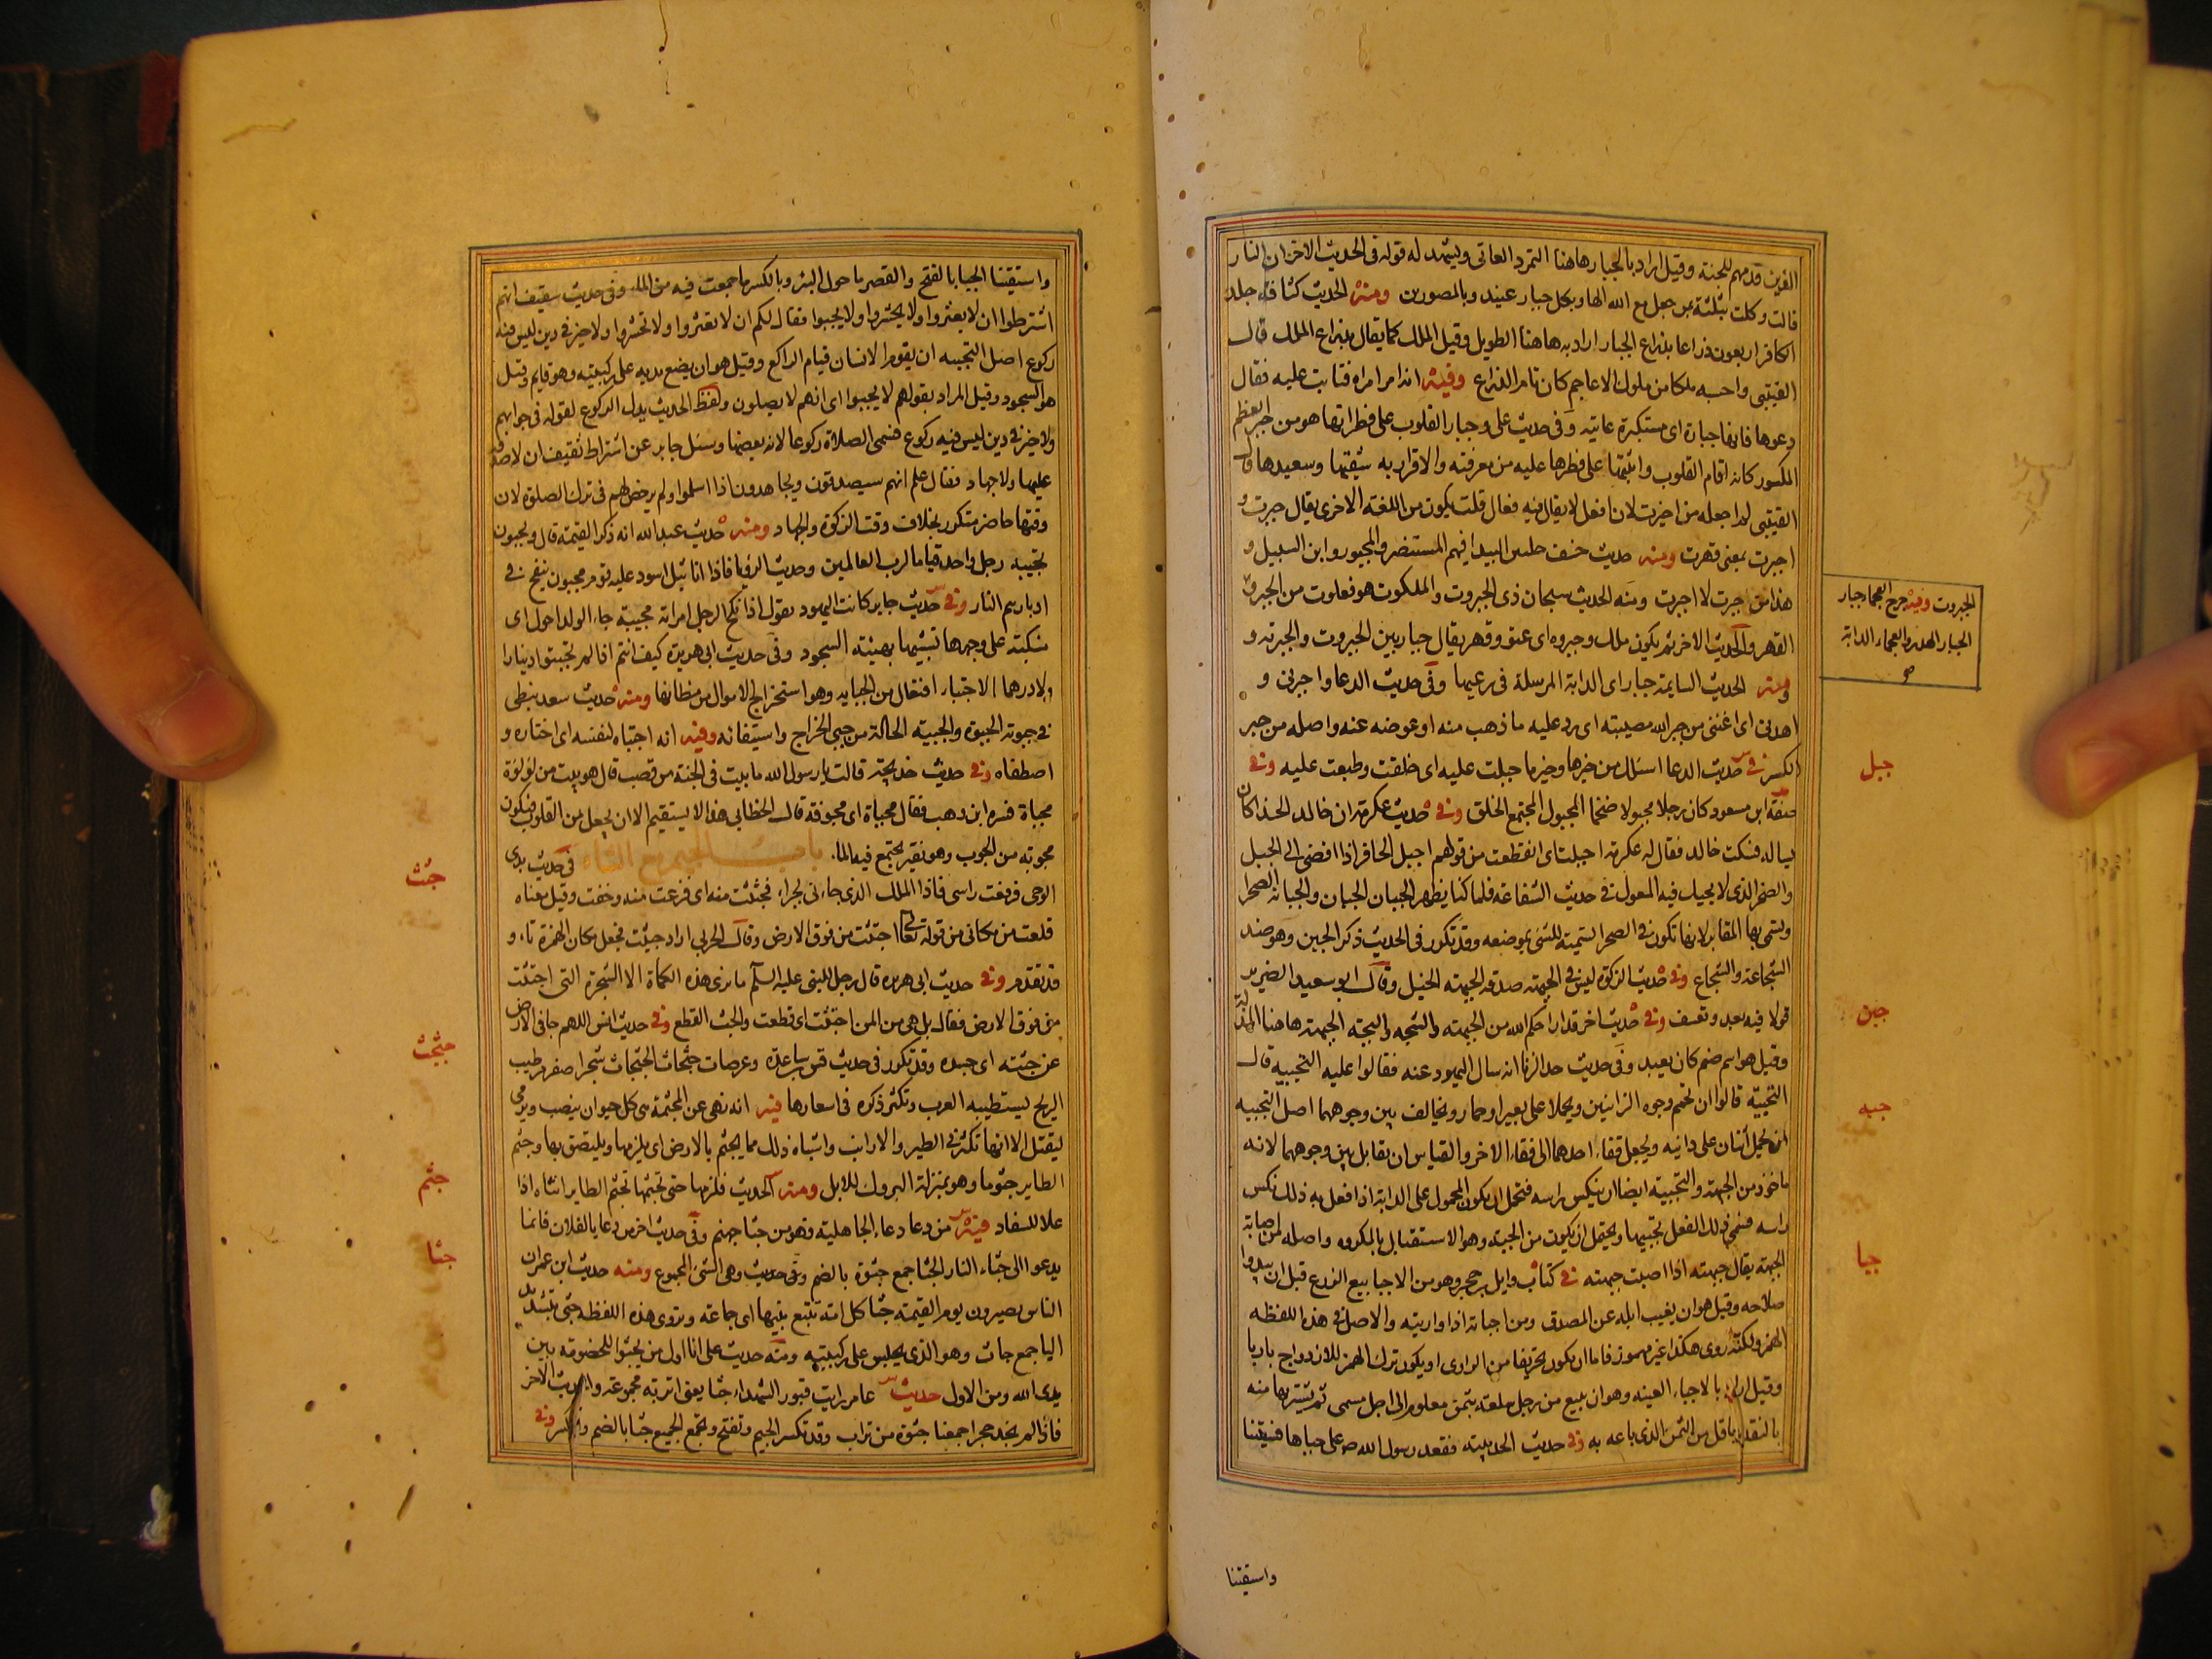 الذين قدمهم للجنة وقيل اراد بالجبار هاهنا المتمرد العاتى ويشهد له قوله فى الحديث الاخر ان النار
قالت وكلت بثلثة بمن جعل مع الله الها وبكل جبار عنيد وبالمصورين ومنه الحديث كثافة جلد
الكافر اربعون ذراعا بذراع الجبار اراد به هاهنا الطويل وقيل الملك كما يقال بذراع الملك قال
القتيبى واحسبه ملكا من ملوك الاعاجم كان تام الذراع وفيه انه امر امراة فتابت عليه فقال
دعوها فانها جبارة اى مستكبرة عاتية وفى حديث على وجبار القلوب على فطراتها هو من جبر العظم
المكسور كانه اقام القلوب واثبتها على فطرها عليه من معرفته والاقرار به شقيها وسعيدها قال
القتيبى لم اجعله من اجبرت لان افعل لا يقال فيه فعال قلت يكون من اللغة الاخرى يقال جبرت و
اجبرت بمعنى قهرت ومنه حديث خسف جيش البيدا فيهم المستبصر والمجبور وابن السبيل و
هذا من جبرت لا اجبرت ومنه الحديث سبحان ذى الجبروت والملكوت هو فعلوت من الجبر و
القهر والحديث الاخر ثم يكون ملك وجبروه اى عتو وقهر يقال جبار بين الجبروت والجبرية و
الجبروت وفيه جرح العجما جبار
الجبار الهدر والعجماء الدابة
صح
ومنه الحديث السايمة جبار اى الدابة المرسلة فى رعيها وفى حديث الدعا واجبرنى و
اهدنى اى اغننى من جبر الله مصيبته اى رد عليه ما ذهب منه او عوضه عنه واصله من جبر
جبل
الكسر فى حديث الدعا اسئلك من خيرها وخير ما جبلت عليه اى خلقت وطبعت عليه وفى
صفة ابن مسعود كان رجلا مجبولا ضخما المجبول المجتمع الخلق وفى حديث عكرمة ان خالد الحذا كان
يساله فسكت خالد فقال له عكرمة اجبلت اى انقطعت من قولهم اجبل الحافر اذا افضى الى الجبل
جبن
والصخر الذى لا يحيك فيه المعول فى حديث الشفاعة فلما كنا بظهر الجبان الجبان والجبانة الصحرا
وتسمى بها المقابر لانها تكون فى الصحرا تسمية للشئ بموضعه وقد تكرر فى الحديث ذكر الجبن وهو ضد
جبه
الشجاعة والشجاع وفى حديث الزكوة ليس فى الجبهة صدقة الجبهة الخيل وقال ابو سعيد الضرير
قولا فيه بعد وتعسف وفى حديث اخر قد اراحكم الله من الجبهة والسجه والبجة الجبهة هاهنا المذلة
وقيل هو اسم صنم كان يعبد وفى حديث حد الزنا انه سال اليهود عنه فقالوا عليه التجبيه قال
التجبيه قالوا ان تحمم وجوه الزانيين ويحملا على بعير او حمار ويخالف بين وجوههما اصل التجبيه
ان يحمل اثنان على دابة ويجعل قفا احدهما الى قفا الاخر والقياس ان يقابل بين وجوههما لانه
ماخوذ من الجبهة والتجبيه ايضا ان ينكس راسه فتحمل ان يكون المحمول على الدابة اذا فعل به ذلك نكس
راسه فسمى ذلك الفعل تجبيها ويحتمل ان يكون من الجبه وهو الاستقبال بالمكروه واصله من اصابة
جبا
الجبهة يقال جبهته اذا اصبت جبهته فى كتاب وايل بن حجر وهو من الاجبا بيع الزرع قبل ان يبدوا
صلاحه وقيل هو ان يغيب ابله عن المصدق ومن اجباته اذا واريته والاصل فى هذه اللفظه
الهمز ولكنه روى هكذا غير مهموز فاما ان يكون تحريفا من الراوى او يكون ترك الهمز للازدواج باربا
وقيل اراد بالاجباء العينه وهو ان يبيع من رجل سلعة بثمن معلوم الى اجل مسمى ثم يشتريها منه
بالنقد باقل من الثمن الذى باعه به وفى حديث الحديبية فقعد رسول الله ص على جباها فسقينا
واستقينا
واستقينا الجبا بالفتح والقصر ما حول البئر وبالكسر ما جمعت فيه من الماء وفى حديث ثقيف انهم
اشترطوا ان لا يعشروا ولا يحشروا ولا يجبوا فقال لكم ان لا تعشروا ولا تحشروا ولا خير فى دين ليس فيه
ركوع اصل التجبيه ان يقوم الانسان قيام الراكع وقيل هو ان يضع يديه على ركبتيه وهو قايم وقيل
هو السجود وقيل المراد بقولهم لا يجبوا اى انهم لا يصلون ولفظ الحديث يدل الركوع لقوله فى جوابهم
ولا خير فى دين ليس فيه ركوع فسمى الصلاة ركوعا لانه بعضها وسئل جابر عن اشتراط ثقيف ان لا صدقة
عليها ولا جهاد فقال علم انهم سيصدقون ويجاهدون اذا اسلموا ولم يرخص لهم فى ترك الصلوة لان
وقتها حاضر متكرر بخلاف وقت الزكوة والجهاد ومنه حديث عبد الله انه ذكر القيمة قال ويجبون
تجبيه رجل واحد قياما لرب العالمين وحديث الرؤيا فاذا انا بتل اسود عليه قوم مجبون ينفخ فى
ادبارهم النار وفى حديث جابر كانت اليهود تقول اذا نكح الرجل امراته مجبية جاء الولد احول اى
منكبة على وجهها تشبيها بهيئة السجود وفى حديث ابى هريرة كيف انتم اذا لم تجبتوا دينارا
ولا درهما الاجتبا افتعال من الجبايه وهو استخراج الاموال من مظانها ومنه حديث سعد نبطى
فى جبوته الجبوة والجبية الحالة من جبى الخراج واستيفائه وفيه انه اجتباه لنفسه اى اختاره و
اصطفاه وفى حديث خديجة قالت يا رسول الله ما بيت فى الجنة من قصب قال هو بيت من لؤلؤة
مجباة فسره ابن وهب فقال مجباة اى مجوفة قال الخطابى هذا لا يستقيم الا ان يجعل من القلوب فيكون
جثث
مجوبة من الجوب وهو نقير يجتمع فيه الماء باب الجيم مع الثاء فى حديث بدى
الوحى فرفعت راسى فاذا الملك الذى جاءنى بحراء فجثثت منه اى فزعت منه وخفت وقيل معناه
قلعت من مكانى من قوله تعالى اجتثت من فوق الارض وقال الحربى اراد جئثت فجعل مكان الهمزة ثاء و
قد تقدم وفى حديث ابى هريره قال رجل للنبى عليه السلم ما نرى هذه الكماة الا الشجرة التى اجتثت
من فوق الارض فقال بل هى من المن اجتثت اى قطعت والجث القطع وفى حديث انس اللهم جافى الارض
جثجث
عن جثته اى جسده وقد تكرر فى حديث قس بن ساعدة وعرصات جثجاث الجثجاث شجر اصفر مر طيب
الريح يستطيبه العرب وتكثر ذكره فى اشعارها فيه انه نهى عن المجثمة هى كل حيوان ينصب ويرمى
ليقتل الا انها تكثر فى الطير والارانب واشباه ذلك مما يجثم بالارض اى يلزمها ويلتصق بها وجثم
جثم
الطاير جثوما وهو بمنزلة البروك للابل ومنه الحديث فلزمها حتى تجثمها تجثم الطاير انثاه اذا
علا للسفاد فيه من دعا دعاء الجاهلية فهو من جثا جهنم وفى حديث اخر من دعا يا لفلان فانما
جثا
يدعوا الى جثاء النار الجثا جمع جثوة بالضم وفى حديث وهى الشئ المجموع ومنه حديث ابن عمر ان
الناس يصيرون يوم القيمة جثا كل امة تتبع نبيها اى جماعة وتروى هذه اللفظه جثى بتشديد
اليا جمع جاث وهو الذى يجلس على ركبتيه ومنه حديث على انا اول من يجثوا للخصومة بين
يدى الله ومن الاول حديث عامر رايت قبور الشهداء جثا يعنى اتربة مجموعة والحديث الاخر
فاذا لم نجد حجرا جمعنا جثوة من تراب وقد تكسر الجيم وتفتح ويجمع الجميع جثا بالضم والكسر وفى